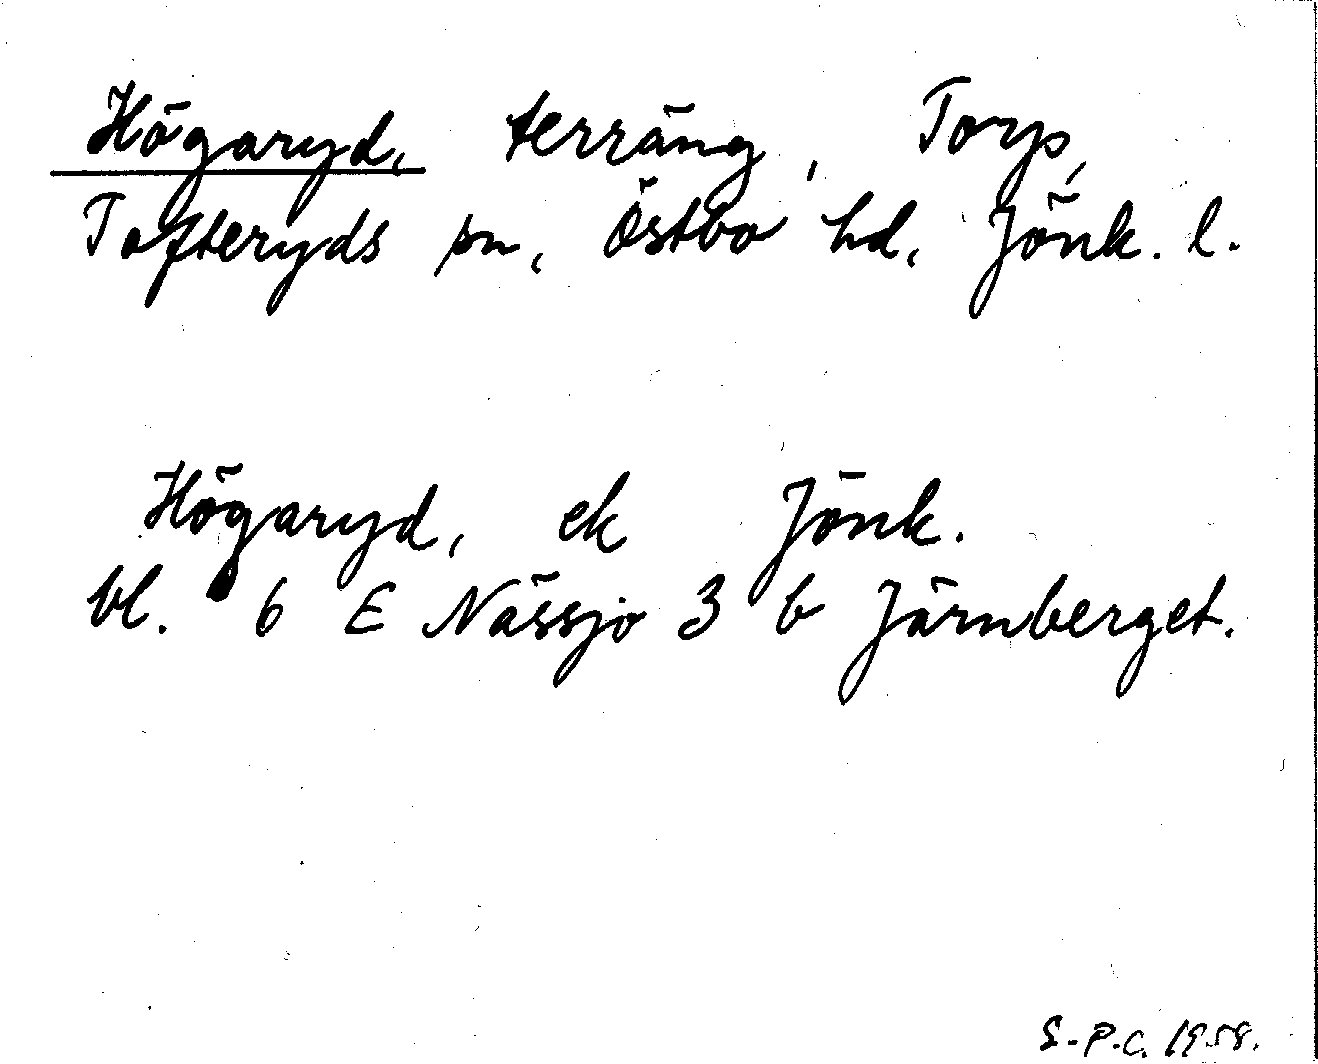 Högaryd, terräng, Torp,
Tofteryds sn, Östbo hd, Jönk. l.
Högaryd, ek Jönk.
bl. 6 E Nässjö 3 b Järnberget.
S-P.C. 1958.